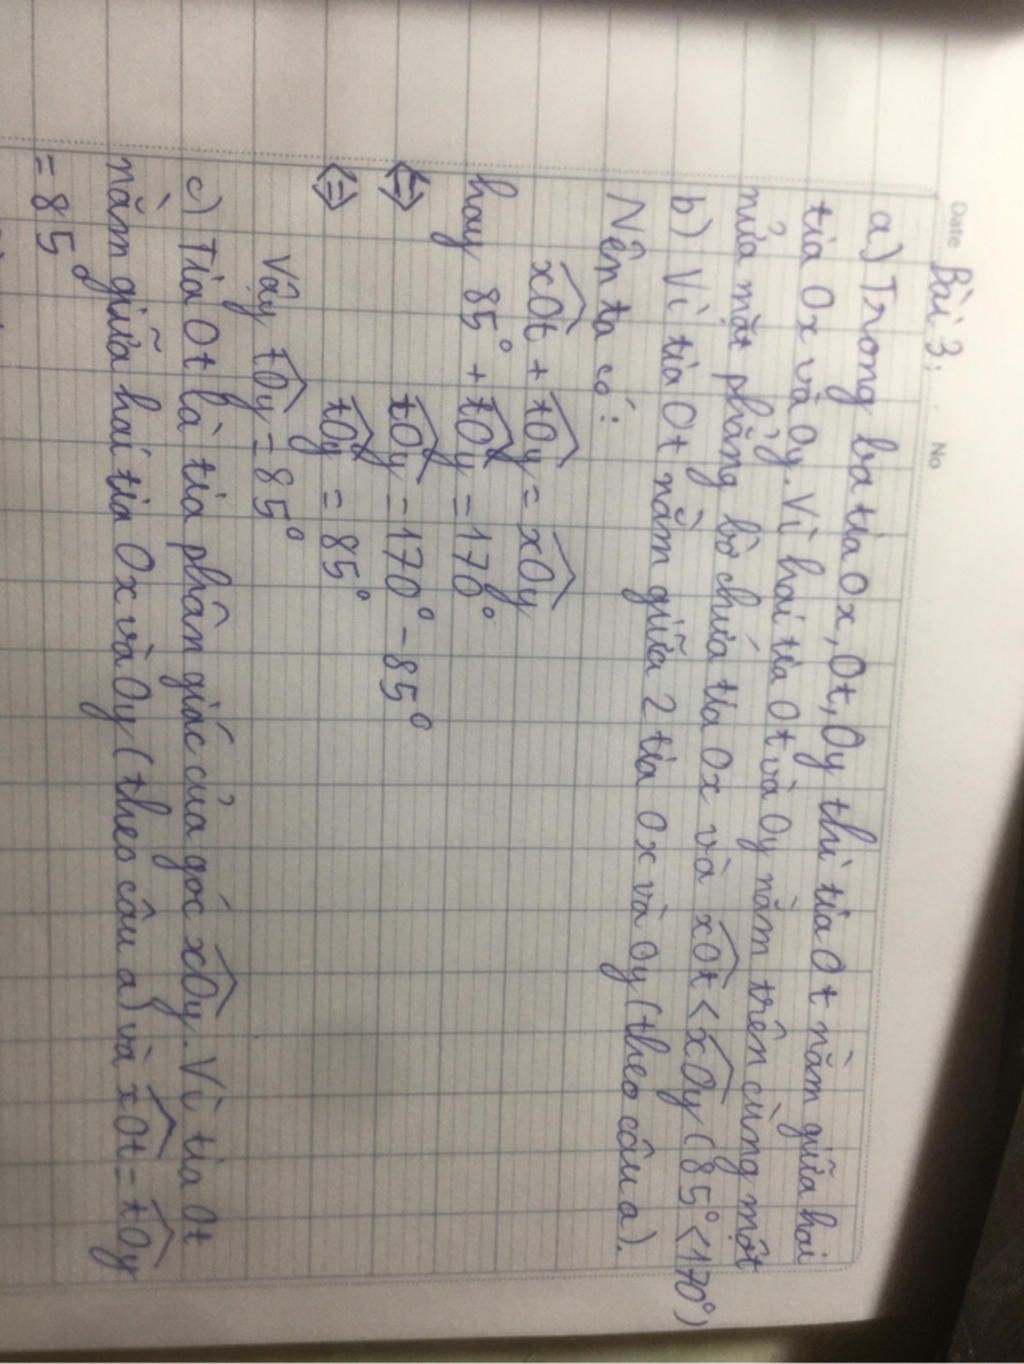 Date No
Bài 3:
a) Trong ba tia Ox, Ot, Oy thì tia Ot nằm giữa hai
tia Ox và Oy. Vì hai tia Ot và Oy nằm trên cùng một
nửa mặt phẳng bờ chứa tia Ox và xOt < xOy (85° < 170°)
b) Vì tia Ot nằm giữa 2 tia Ox và Oy (theo câu a).
Nên ta có:
xOt + tOy = xOy
hay 85° + tOy = 170°
⇔ tOy = 170° - 85°
⇔ tOy = 85°
Vậy tOy = 85°
c) Tia Ot là tia phân giác của góc xOy. Vì tia Ot
nằm giữa hai tia Ox và Oy (theo câu a) và xOt = tOy
= 85°